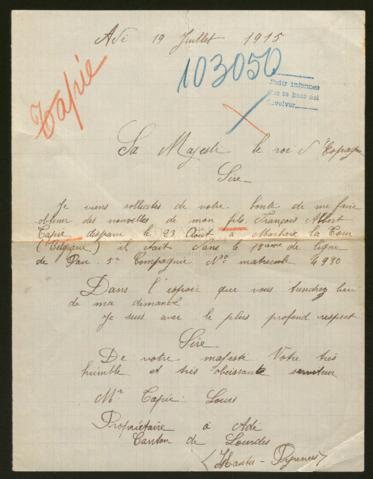 Adé 19 Juillet 1915
103050
Tapie
Pedir informes
Sa Majesté le roi d'Espagne
Sire
Je viens sollicter de votre bonté de me faire
obtenir des nouvelles de mon fils, François Albert
Tapie disparu le 23 Août à Marbaix la Tour
(Belgique) il était dans le 18ème de ligne
de Pau 5e Compagnie No matricule 4930
Dans l'espoir que vous tiendrez lieu
de ma demande
Je suis avec le plus profond respect
Sire
De votre majesté Votre très
humble et très obeissante serviteur
Mr Tapie Louis
Propriétaire à Adé
Canton de Lourdes
(Hautes-Pyrenées)